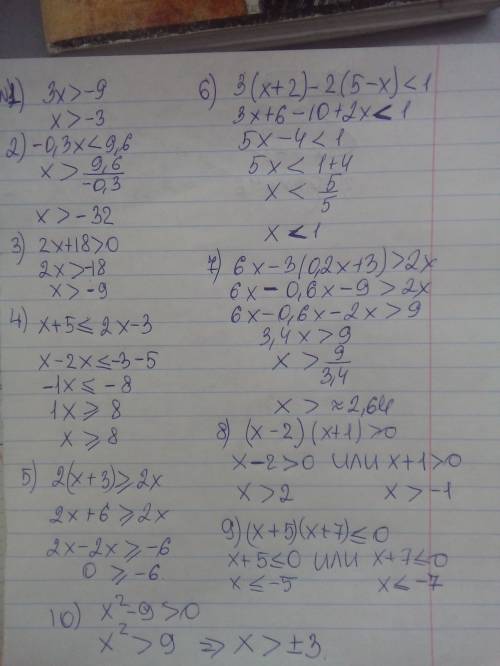 №1) 3x>-9
x>-3
2) -0,3x<9,6
x > 9,6/-0,3
x>-32
3) 2x+18>0
2x>-18
x>-9
4) x+5≤2x-3
x-2x≤-3-5
-1x≤-8
1x≥8
x≥8
5) 2(x+3)≥2x
2x+6≥2x
2x-2x≥-6
0≥-6
6) 3(x+2)-2(5-x)<1
3x+6-10+2x<1
5x-4<1
5x<1+4
x<5/5
x<1
7) 6x-3(0,2x+3)>2x
6x-0,6x-9>2x
6x-0,6x-2x>9
3,4x>9
x>9/3,4
x>≈2,64
8) (x-2)(x+1)>0
x-2>0 или x+1>0
x>2 x>-1
9) (x+5)(x+7)≤0
x+5≤0 или x+7≤0
x≤-5 x≤-7
10) x²-9>0
x²>9 => x>±3